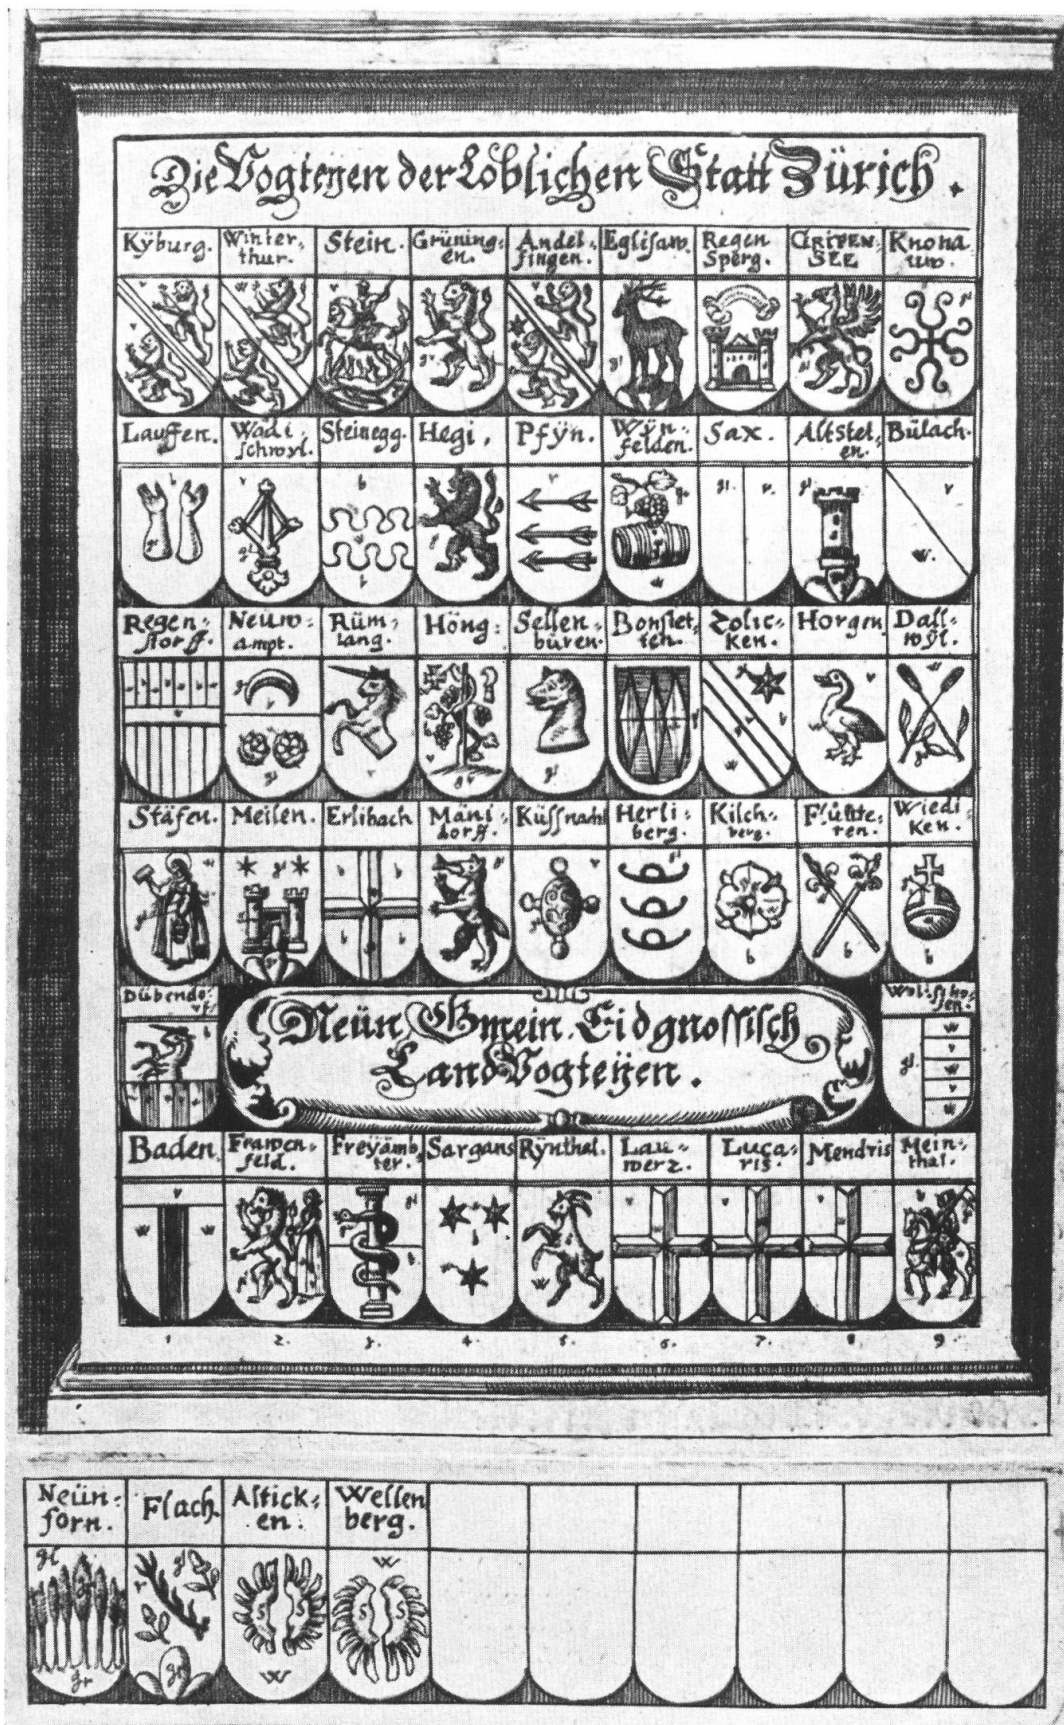 Die Vogteyen der Loblichen Statt Zürich.
Kÿburg. Winter- thur. Stein. Grüning- en. Andel- fingen. Eglisaw. Regen Sperg. GRIFEN- SEE Knona uw.
Lauffen. Wädi- schwyl. Steinegg. Hegi. Pfÿn. Wÿn- felden. Sax. Altstet- en. Bülach.
Regen- storff. Neüw- ampt. Rüm- lang. Höng. Sellen- büren. Bonstet- ten. Zolic- ken. Horgen Dall- wÿl.
Stäfen. Meilen. Erlibach Mäni- dorff. Küssnacht Herli- berg. Kilch- berg. Flüntte- ren. Wiedi- ken.
Dübendo- rf. Wolisho- fen.
Neün Gmein Eidgnossisch
Land Vogteÿen.
Baden. Frawen- feld. Freÿämb- ter. Sargans Rÿnthal. Lau- werz. Luca- ris. Mendris Mein- thal.
1 2. 3. 4. 5. 6. 7. 8. 9.
Neün- forn. Flach. Altick- en. Wellen berg.